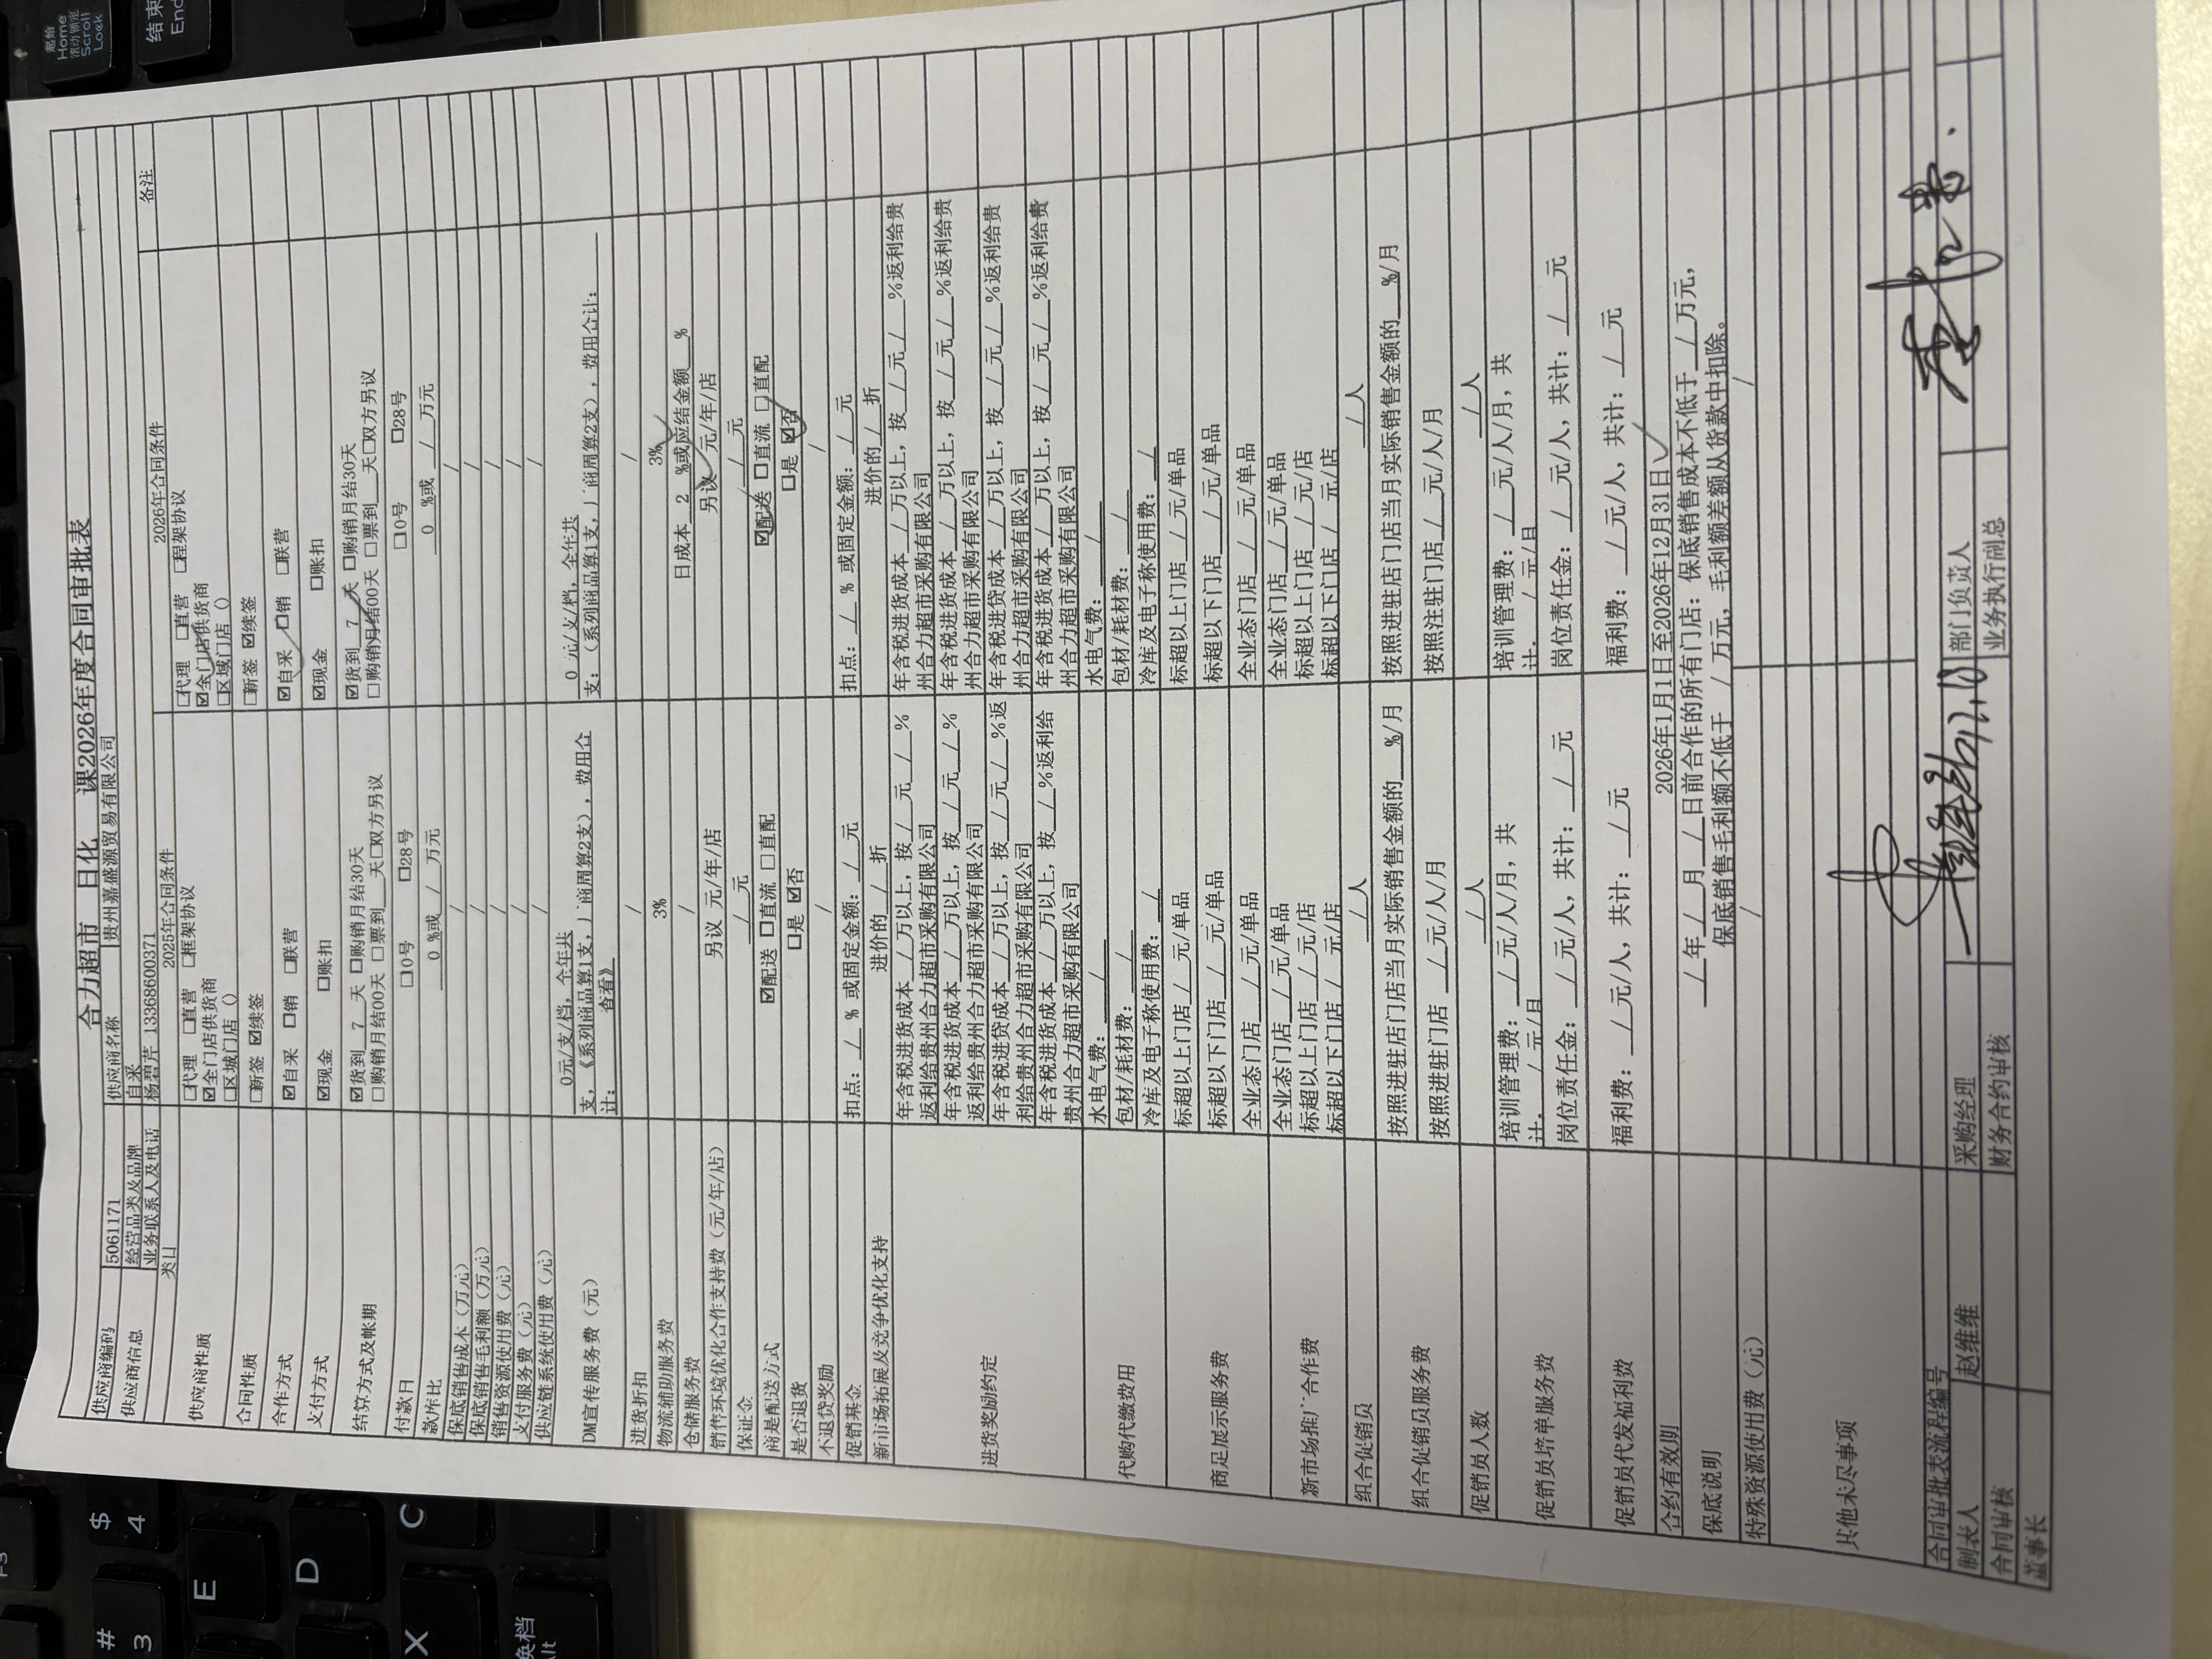 合力超市 日化 课2026年度合同审批表
供应商编码 5061171 供应商名称 贵州嘉盛源贸易有限公司
供应商信息 经营品类及品牌 自采
业务联系人及电话 杨碧芹 13368600371
类目 2025年合同条件 2026年合同条件 备注
供应商性质 □代理 □直营 □框架协议 □代理 □直营 □程架协议
☑全门店供货商 ☑全门店供货商
□区域门店 () □区域门店 ()
合同性质 □新签 ☑续签 □新签 ☑续签
合作方式 ☑自采 □销 □联营 ☑自采 □销 □联营
支付方式 ☑现金 □账扣 ☑现金 □账扣
结算方式及帐期 ☑货到 7 天 □购销月结30天 ☑货到 7 天 □购销月结30天
□购销月结00天 □票到 天□双方另议 □购销月结00天 □票到 天□双方另议
付款日 □0号 □28号 □0号 □28号
款库比 0 %或 / 万元 0 %或 / 万元
保底销售成本（万元） / /
保底销售毛利额（万元） / /
销售资源使用费（元） / /
支付服务费（元） / /
供应链系统使用费（元） / /
DM宣传服务费（元） 0元/支/档，全年共 0 元/支/档，全年共
支，《系列商品算1支，厂商周算2支），费用合 支：（系列商品算1支，厂商周算2支），费用合计：
计： 查看》
进货折扣 / /
物流辅助服务费 3% 3%
仓储服务费 / 日成本 2 %或应结金额 %
销售环境优化合作支持费（元/年/店） 另议 元/年/店 另议 元/年/店
保证金 / 元 / 元
商是配送方式 ☑配送 □直流 □直配 ☑配送 □直流 □直配
是否退货 □是 ☑否 □是 ☑否
不退货奖励 / /
促销基金 扣点： / % 或固定金额： / 元 扣点： / % 或固定金额： / 元
新市场拓展及竞争优化支持 进价的 / 折 进价的 / 折
进货奖励约定 年含税进货成本 / 万以上，按 / 元 / % 年含税进货成本 / 万以上，按 / 元 / %返利给贵
返利给贵州合力超市采购有限公司 州合力超市采购有限公司
年含税进货成本 / 万以上，按 / 元 / % 年含税进货成本 / 万以上，按 / 元 / %返利给贵
返利给贵州合力超市采购有限公司 州合力超市采购有限公司
年含税进贷成本 / 万以上，按 / 元 / %返 年含税进贷成本 / 万以上，按 / 元 / %返利给贵
利给贵州合力超市采购有限公司 州合力超市采购有限公司
年含税进货成本 / 万以上，按 / %返利给 年含税进货成本 / 万以上，按 / 元 / %返利给贵
贵州合力超市采购有限公司 州合力超市采购有限公司
代购代缴费用 水电气费： / 水电气费： /
包材/耗材费： / 包材/耗材费： /
冷库及电子称使用费： / 冷库及电子称使用费： /
商足展示服务费 标超以上门店 / 元/单品 标超以上门店 / 元/单品
标超以下门店 / 元/单品 标超以下门店 / 元/单品
全业态门店 / 元/单品 全业态门店 / 元/单品
新市场推广合作费 全业态门店 / 元/单品 全业态门店 / 元/单品
标超以上门店 / 元/店 标超以上门店 / 元/店
标超以下门店 / 元/店 标超以下门店 / 元/店
组合促销员 / 人 / 人
组合促销员服务费 按照进驻店门店当月实际销售金额的 %/月 按照进驻店门店当月实际销售金额的 %/月
按照进驻门店 / 元/人/月 按照注驻门店 / 元/人/月
促销员人数 / 人 / 人
促销员培单服务费 培训管理费： / 元/人/月，共 培训管理费： / 元/人/月，共
计. / 元/月 计. / 元/月
岗位责任金： / 元/人，共计： / 元 岗位责任金： / 元/人，共计： / 元
促销员代发福利费 福利费： / 元/人，共计： / 元 福利费： / 元/人，共计： / 元
合约有效期 2026年1月1日至2026年12月31日
保底说明 / 年 / 月 / 日前合作的所有门店：保底销售成本不低于 / 万元，
保底销售毛利额不低于 / 万元，毛利额差额从货款中扣除。
特殊资源使用费（元） / /
其他未尽事项
合同审批表流程编号
制表人 赵维维 采购经理 部门负责人
合同审核 财务合约审核 业务执行副总
董事长